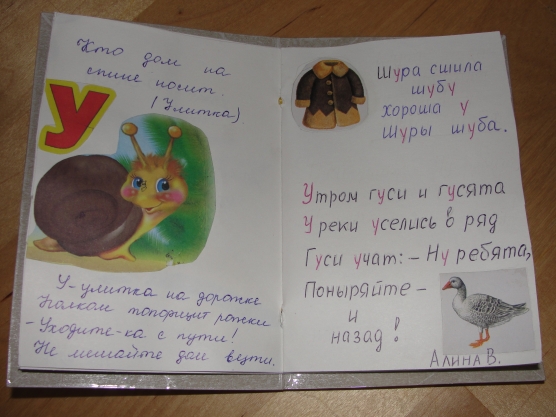 Кто дом на
спине носит.
(Улитка)
У
У-улитка на дорожке
Молчком топорщит рожки
- Уходите-ка с пути!
Не мешайте дом везти.
Шура сшила
шубу
хороша у
Шуры шуба.
Утром гуси и гусята
У реки уселись в ряд
Гуси учат: - Ну ребята,
Поныряйте -
и
назад!
Алина В.